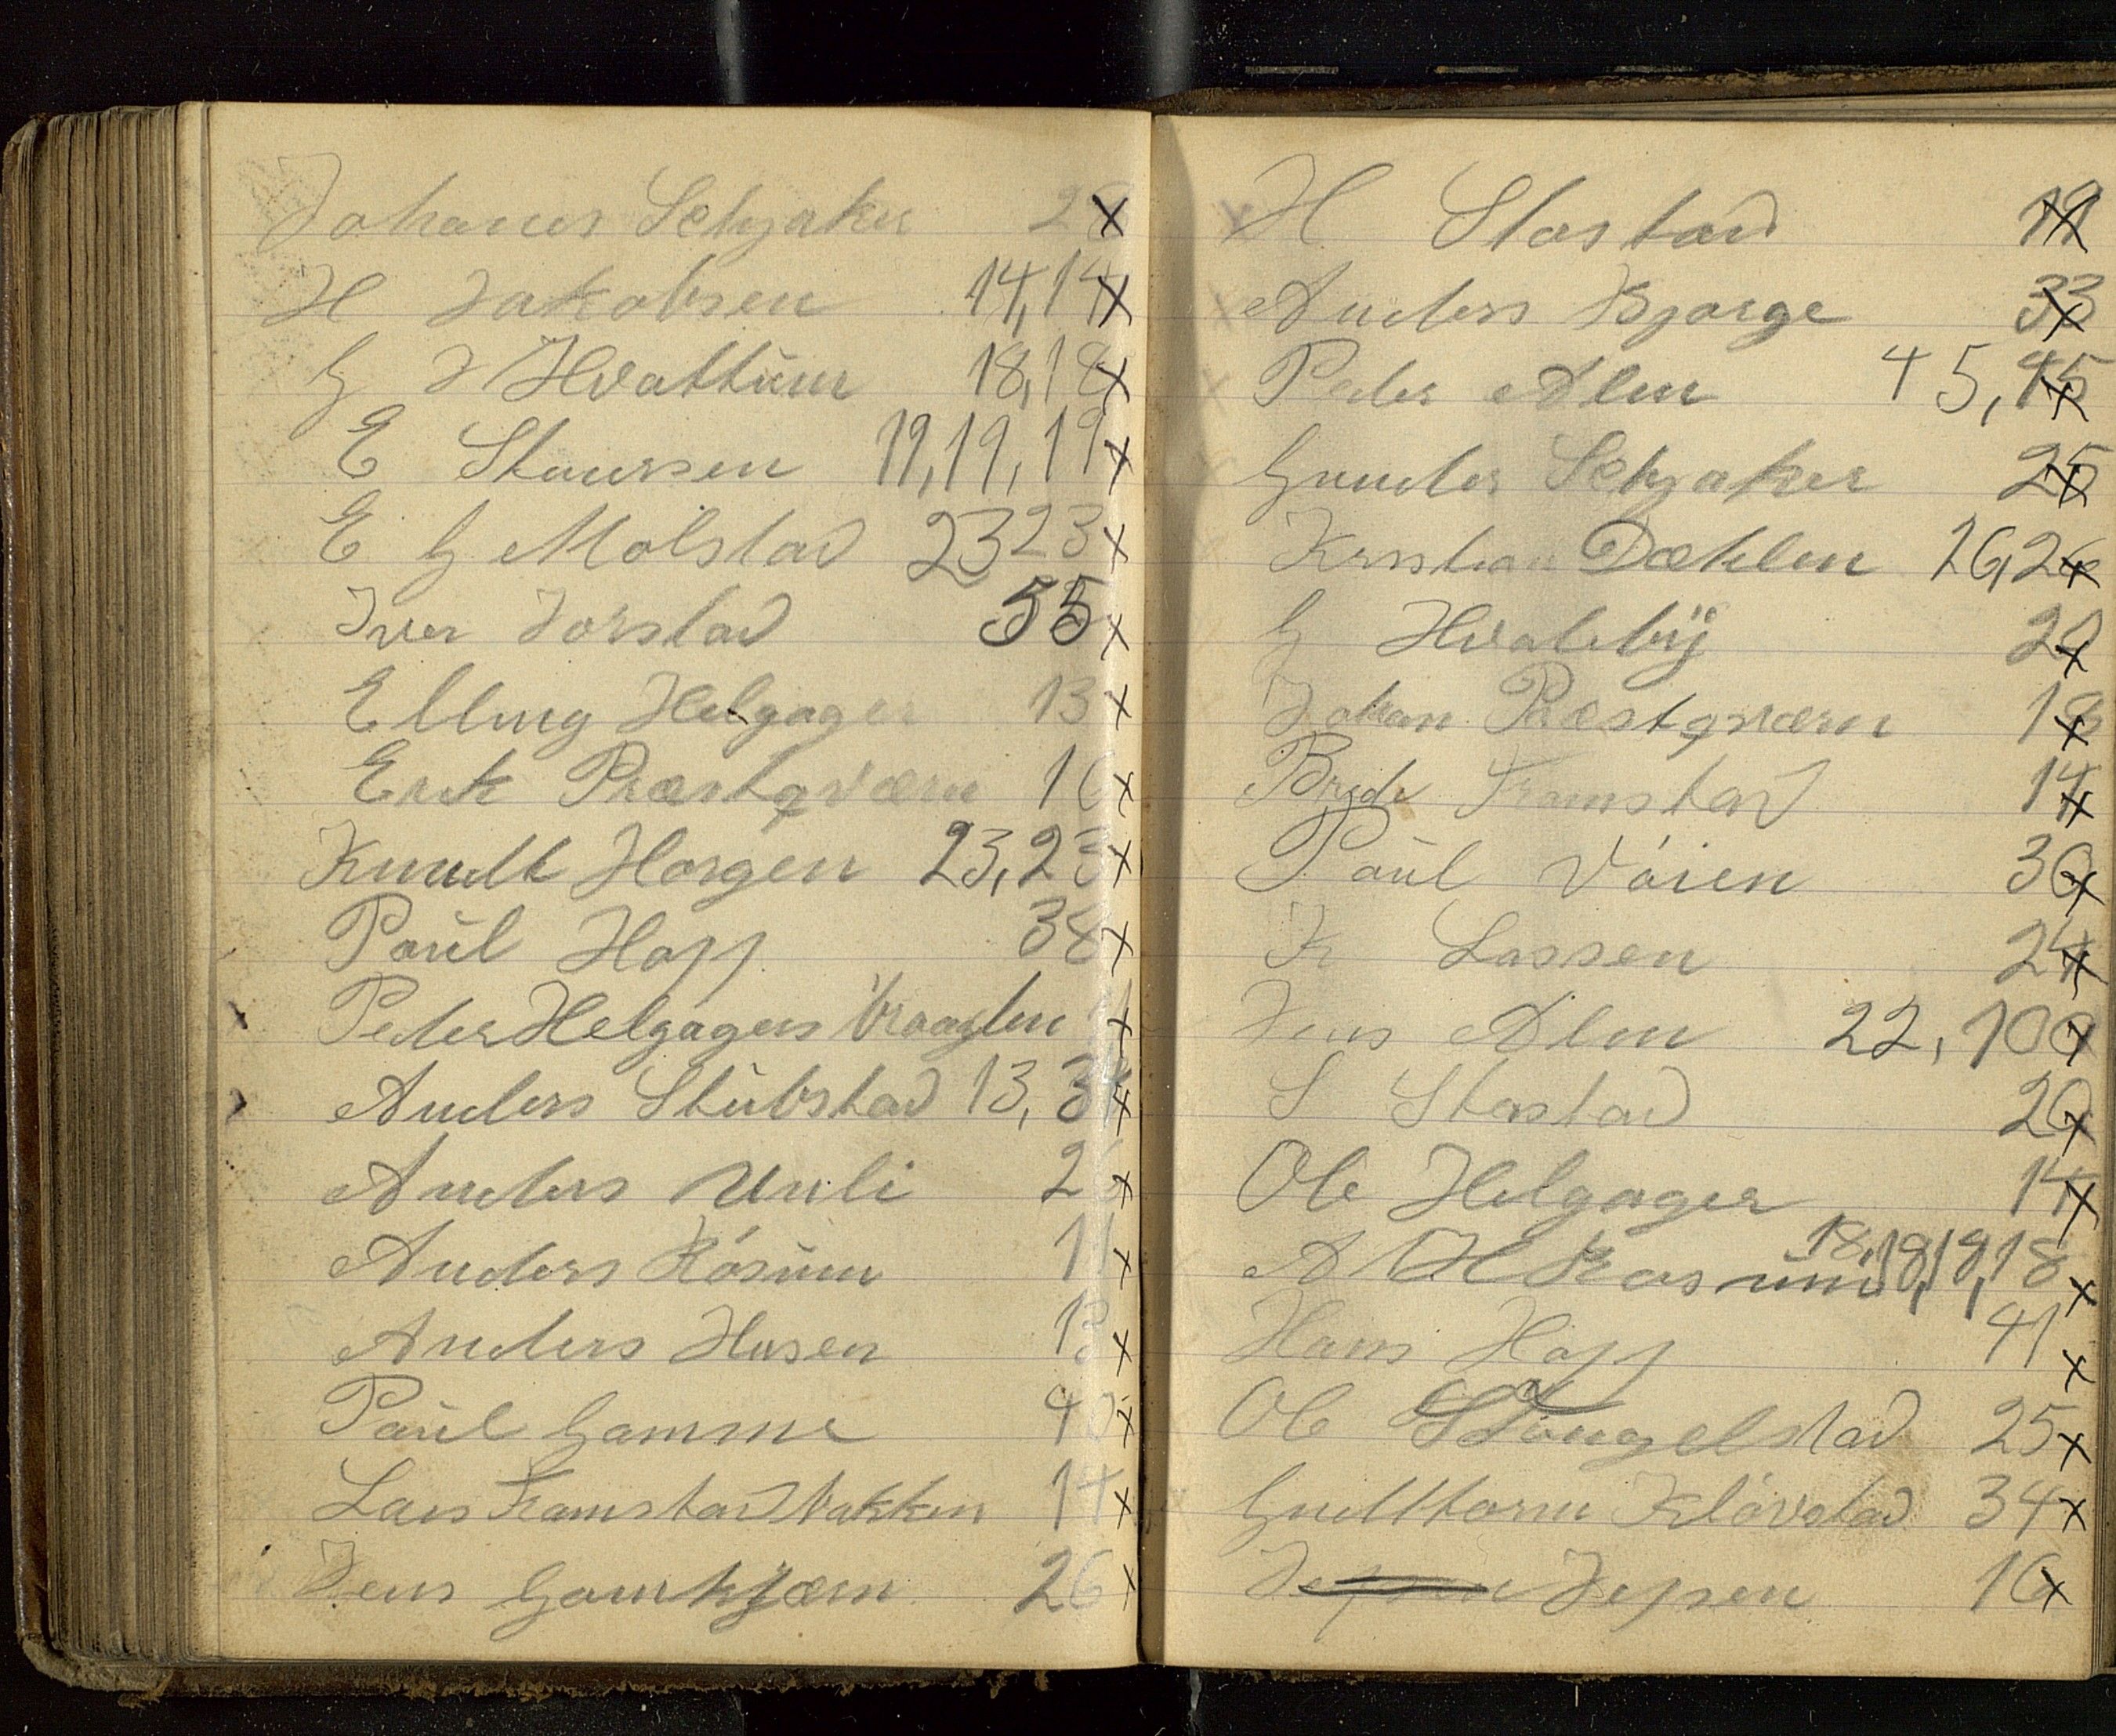 Johanes Selzaker 28 x
H Jakobsen 14,14 x
G J Hvattum 18,18 x
E Staursen 19,19,19 x
E G Molstad 23 23 x
Iver Jorstad 55 x
Elling Helgager 13 x
Erik Præstqværn 16 x
Knudt Horgen 23,23 x
Paul Hopp 38 x
x Peder Helgagers x
Anders Stubstad 13, 34 x
Anders Unli 26 x
Anders Rósum 11 x
Anders Husen 13 x
Paul Gamme 40 x
Lars Framstadbakken 14 x
Jens Gamkjærn 26 x
x H Stastad 19 x
x Anders Bjorge 33 x
x Peder Alm 45,45 x
x Gunder Selzaker 25 x
Kristian Dæhlen 26,26 x
G Hvaleby 20 x
Johan Præstqværn 18 x
Brede Framstad 14 x
Paul Vóien 30 x
K Lassen 24 x
Jens Alm 22, 100 x
S Stastad 20 x
Ole Helgager 14 x
A H Rosum 18,18,18,18 x
Hans Hopp 41 x
Ole 25 x
Gudttorm Klóvstad 34 x
Jepsen 16 x